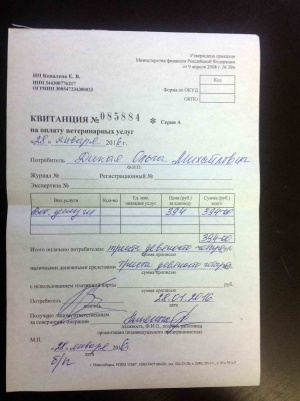 Утверждена приказом
Министерства финансов Российской Федерации
от 9 апреля 2008 г. № 39н
ИП Ковалева Е. В.
Код
Форма по ОКУД
ОКПО
КВИТАНЦИЯ № 085884 * Серия А
на оплату ветеринарных услуг
«28» января 2016 г.
Потребитель Дикая Ольга
Ф.И.О.
Журнал № Регистрационный №
Экспертиза №
Вид услуги Кол-во Ед. изм. Цена (руб.) за единицу Сумма (руб.) всего
Вет. услуги 394 394-00
394-00
Итого оплачено потребителем: триста девяносто четыре
сумма прописью
наличными денежными средствами триста девяносто четыре
сумма прописью
с использованием платежной карты
сумма прописью
Потребитель 28.01.2016
подпись дата
Получено лицом, ответственным
за совершение операции
должность, Ф.И.О., подпись работника
организации (индивидуального предпринимателя)
М.П. «28» января 2016 г.
дата
б/п